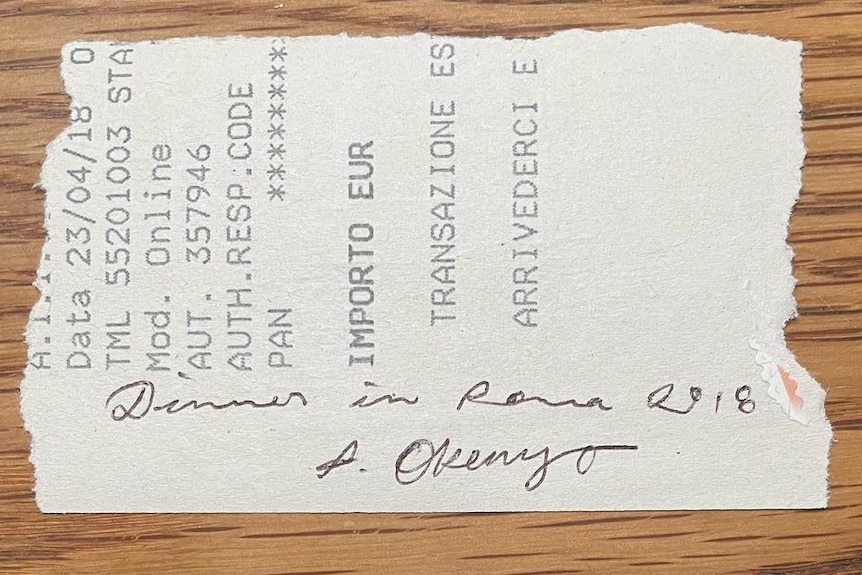 Data 23/04/18 O
TML 55201003 STA
Mod. Online
AUT. 357946
AUTH.RESP.CODE
PAN ********
IMPORTO EUR
TRANSAZIONE ES
ARRIVEDERCI E
Dinner in Roma 2018
A. Okenyo